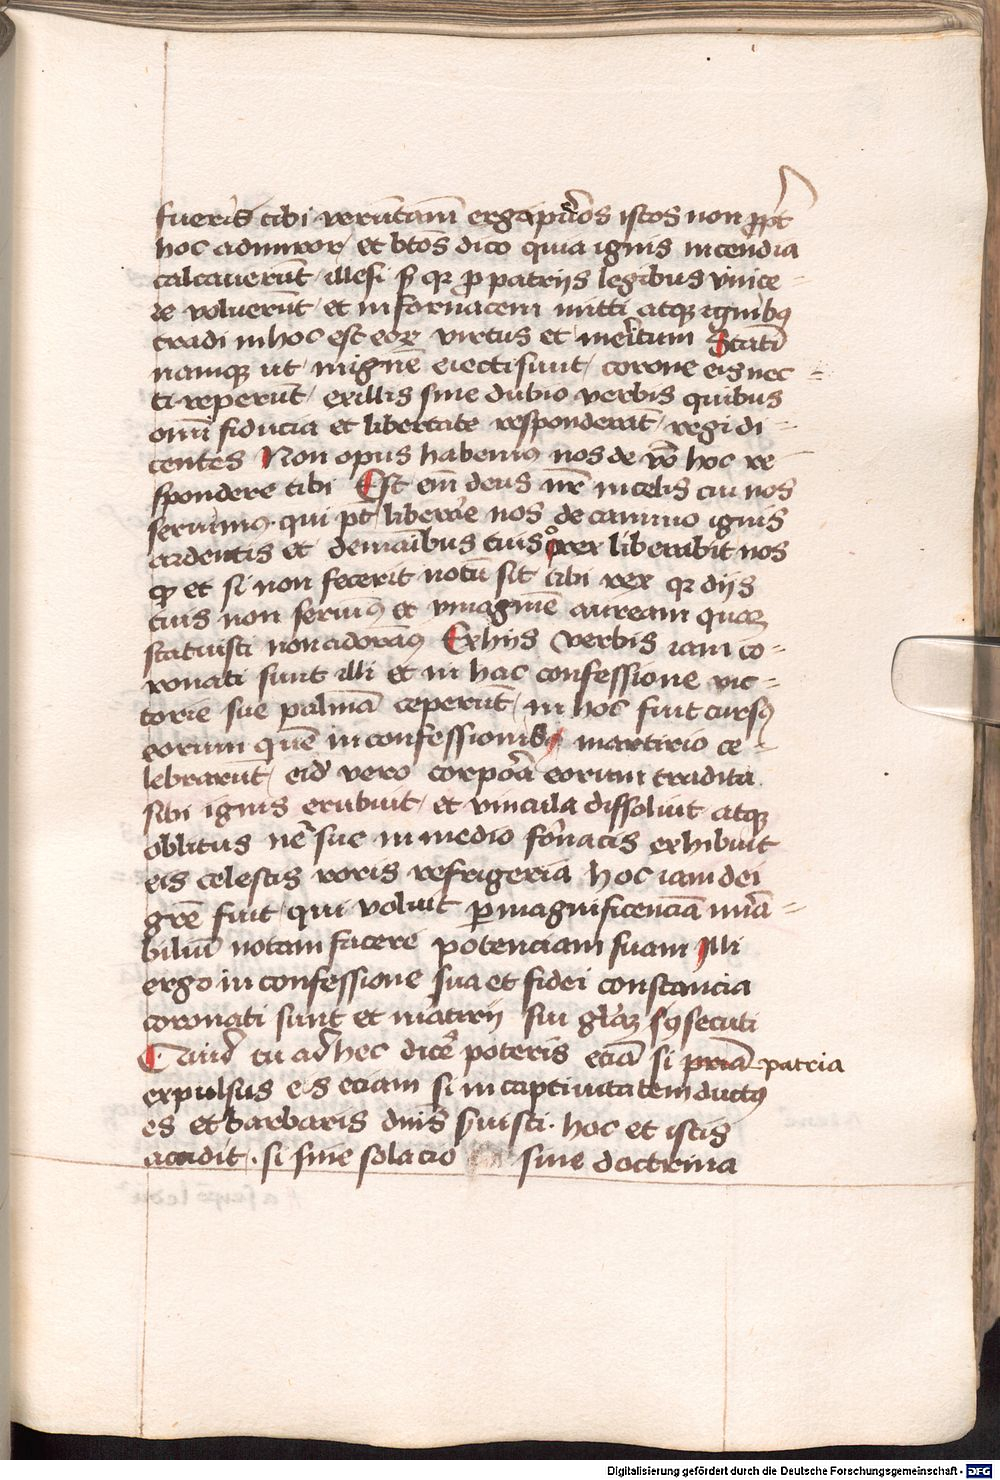 fueris tibi verūtam̄ erga pu̅os istos non ꝓpt̄
hoc admiror / et btōs dico quia ignis incendia
calcauerūt / illesi sꝫ qꝛ ꝓ patrijs legibus vince-
re voluerūt / et in fornacem mitti atqꝫ ignibꝰ
tradi in hoc est eoꝝ virtus et meritum Stati
namqꝫ ut in ignē eiecti sunt / corone eis nec =
ti reperūt / ex illis sine dubio verbis quibus
omī fiducia et libertate responderāt / regi di =
centes Non opus habemꝰ nos de ꝟo hoc re
spondere tibi Est em̄ deus nr̄ in celis cui nos
seruimꝰ . qui pt̄ liberare nos de camino ignis
ardentis et de manibus tuis o rex liberabit nos
qꝫ et si non fecerit notū sit tibi rex qꝛ dijs
tuis non seruimꝰ et ymaginē auream quaꝫ
statuisti non adoramꝰ Ex hijs verbis iam co-
ronati sunt illi et in hac confessione vic =
torie sue palmā ceperūt / in hoc fuit cursꝰ
eorum quē in confessionibꝰ martirio ce -
lebrarūt / eid̄ vero corpora eorum tradita
sibi ignis erubuit / et vincula dissoluit atqꝫ
oblitus ne̅ sue in medio fornacis exhibuit
eis celestis roris refrigeria hoc iam dei
grē fuit / qui voluit ꝑ magnificenciā mirā =
bilium notam facere potenciam suam Illi
ergo in confessione sua et fidei constancia
coronati sunt et mātirij sui gl̄iaꝫ sꝰsecuti
Quid tu ad hec dice᷑ poteris eciā si priā patria
expulsus eis eciam si in captiuitatem ductꝰ
es et barbaris dn̄is ẜuisti . hoc et istis
accidit . si sine solacio sine doctrina
Digitalisierung gefördert durch die Deutsche Forschungsgemeinschaft - DFG